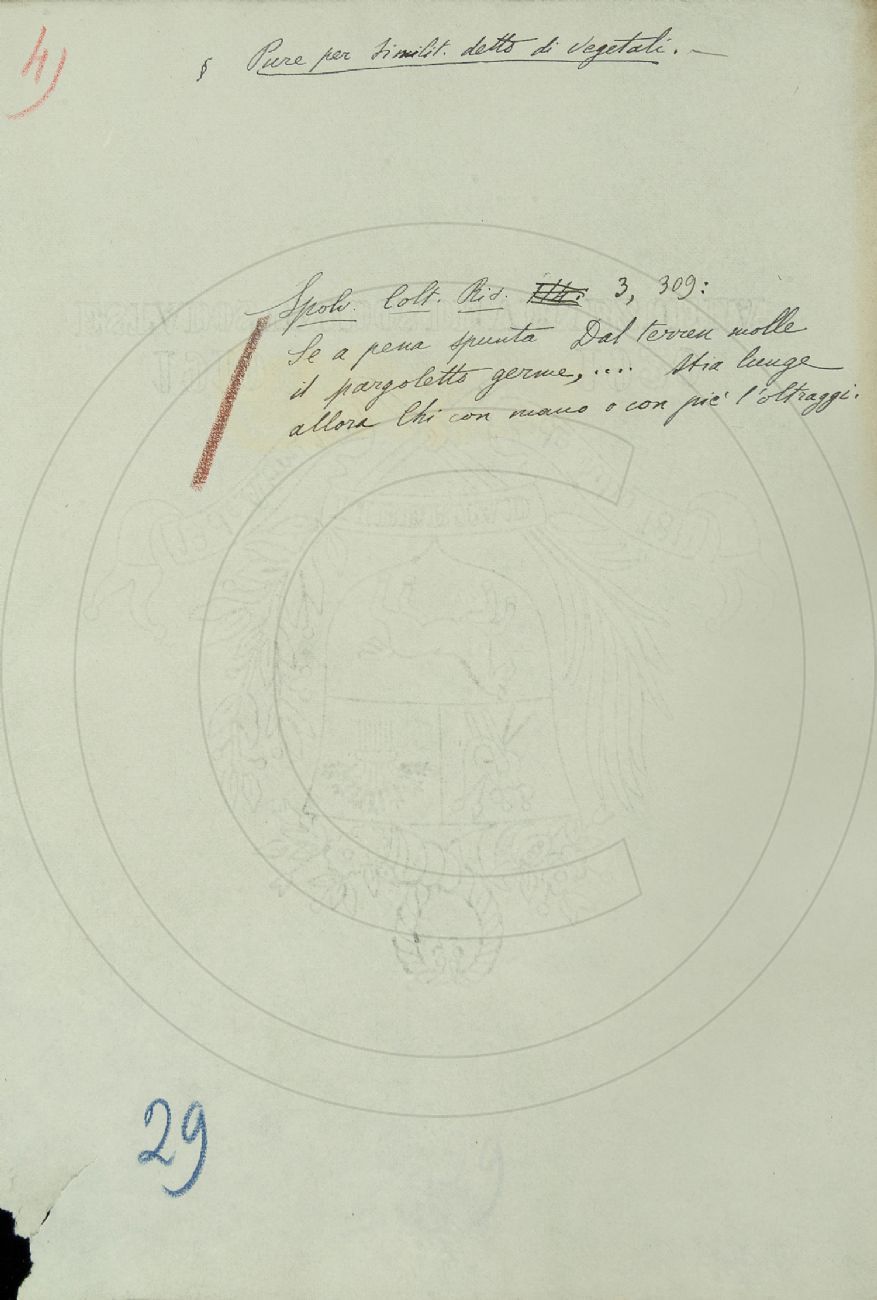 4)
§ Pure per similit. detto di vegetali. —
Spolv. Colt. Ris. 3, 309:
Se a pena spunta Dal terren molle
il pargoletto germe, .... stia lunge
allora Chi con mano o con piè l'oltraggi.
29